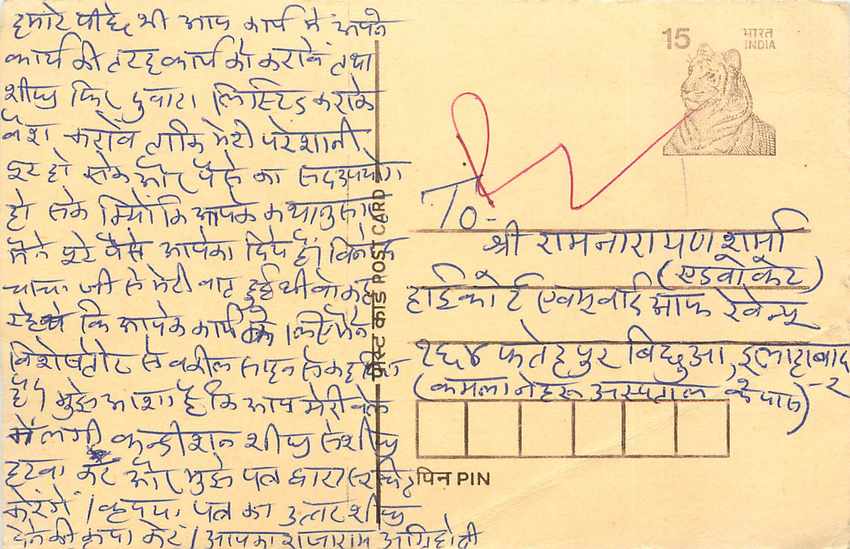 हमारे पीछे भी आप कार्य में अपने
कार्य की तरह कार्य को करावें तथा
शीघ्र फिर दुबारा लिस्टिड कराके
पेश करावें ताकि मेरी परेशानी
दूर हो सके और पैसे का सदउपयोग
हो सके क्योंकि आपके कथानुसार
मैंने पूरे पैसे आपको दिये हैं।
चाचा जी से मेरी बात हुई थी वो कह
रहे थे कि आपके कार्य की लिये मैंने
विशेषतौर से वकील साहब से कह दिया
है। मुझे आशा है कि आप मेरी
में लगी कन्डीशन शीघ्र से शीघ्र
हटवा कर और मुझे पत्र द्वारा सूचित
करेंगे। कृपया पत्र का उत्तर शीघ्र
देने की कृपा करें। आपका राजाराम अग्निहोत्री
पोस्ट कार्ड POST CARD
15
भारत
INDIA
To-
श्री रामनारायण शर्मा
(एडवोकेट)
हाईकोर्ट एवम् बोर्ड आफ रेवेन्यू
१६४ फतेहपुर बिछुआ, इलाहाबाद-२
(कमला नेहरू अस्पताल के पास)
पिन PIN